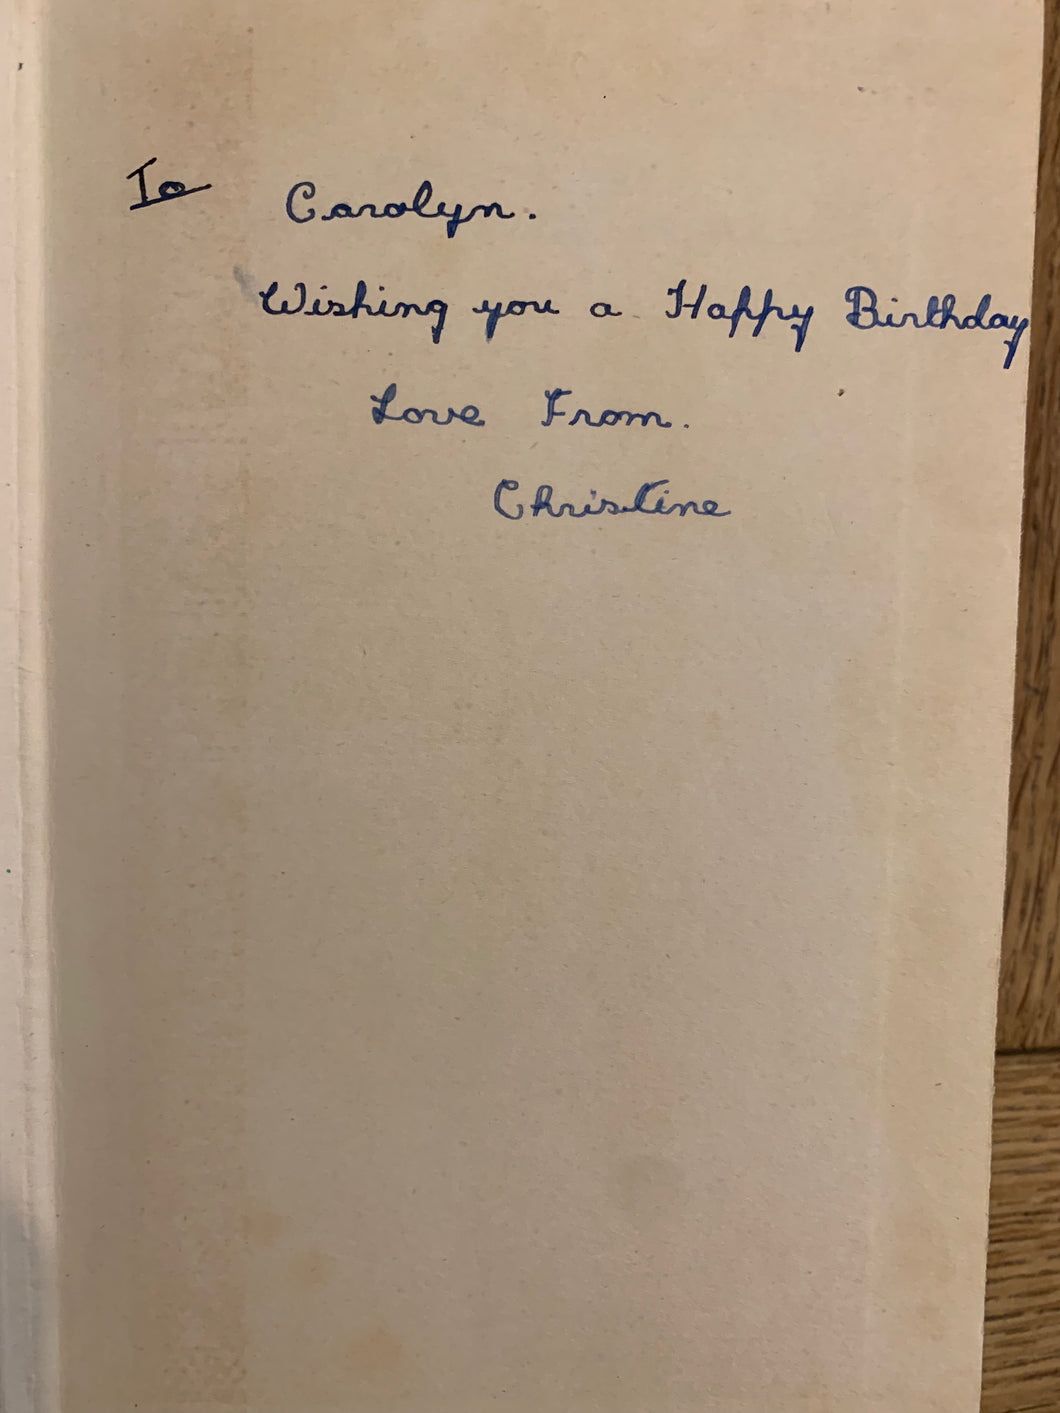 To Carolyn.
Wishing you a Happy Birthday
Love From.
Christine